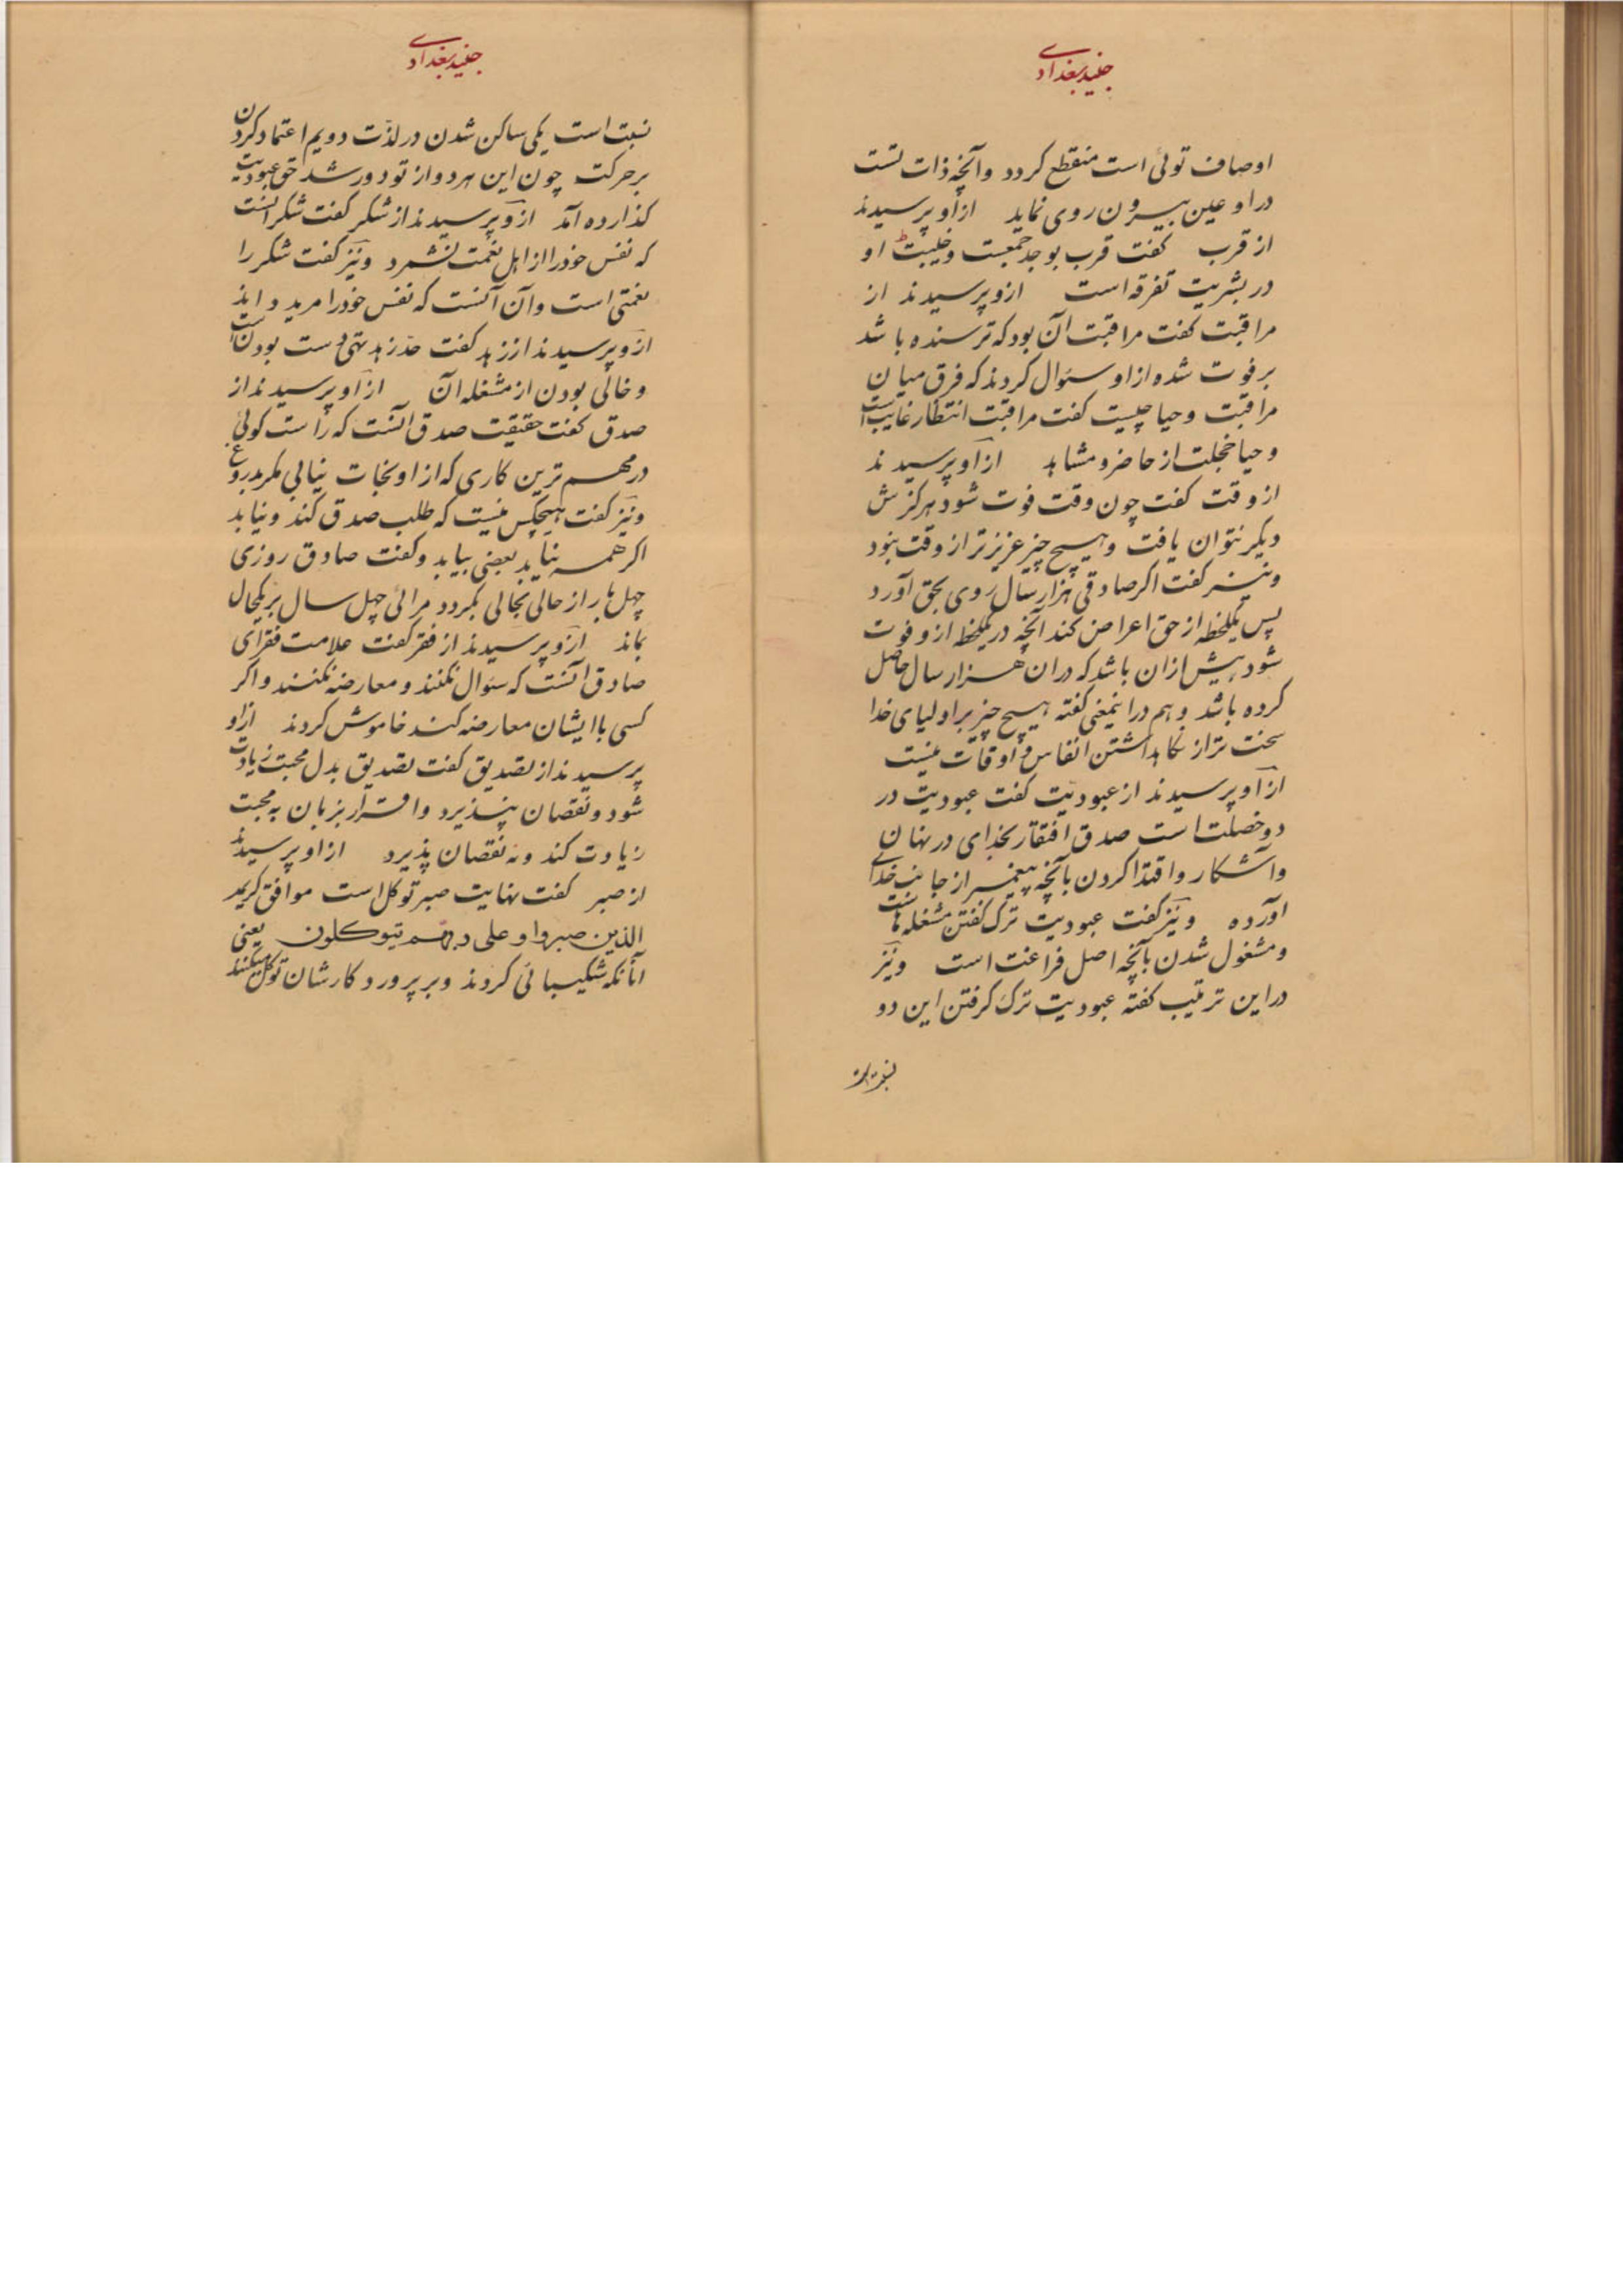 جنید بغدادی
اوصاف توئی است منقطع کردد وآنچه ذات تست
در او عین بیرون روی نماید از او پرسیدند
از قرب کفت قرب بوجد جمعیت وغیبت او
در بشریت تفرقه است ازو پرسیدند از
مراقبت کفت مراقبت آن بود که ترسنده باشد
بر فوت شده از او سئوال کردند که فرق میان
مراقبت وحیا چیست کفت مراقبت انتظار غایب است
وحیا خجلت از حاضر و مشاهد از او پرسیدند
از وقت کفت چون وقت فوت شود هرکزش
دیکر نتوان یافت وهیچ چیز عزیزتر از وقت نبود
ونیز کفت اکر صادقی هزار سال روی بحق آورد
پس یکلحظه از حق اعراض کند آنچه در یکلحظه ازو فوت
شود بیش ازان باشد که دران هزار سال حاصل
کرده باشد وهم در اینمعنی کفته هیچ چیز بر اولیای خدا
سخت تر از نکاهداشتن انفاس و اوقات نیست
از او پرسیدند از عبودیت کفت عبودیت در
دو خصلت است صدق افتقار بخدای در نهان
وآشکار واقتدا کردن بآنچه پیغمبر از جانب خدای
آورده ونیز کفت عبودیت ترک کفتن مشغله هاست
ومشغول شدن بآنچه اصل فراغت است ونیز
در این ترتیب کفته عبودیت ترک کرفتن این دو
نسبت است
جنید بغدادی
نسبت است یکی ساکن شدن در لذت دویم اعتماد کردن
بر حرکت چون این هر دو از تو دور شد حق عبودیت
کذارده آمد ازو پرسیدند از شکر کفت شکر آنست
که نفس خود را از اهل نعمت نشمرد ونیز کفت شکر را
نعمتی است وآن آنست که نفس خود را مرید داند
ازو پرسیدند از زهد کفت حد زهد تهی دست بودن است
وخالی بودن از مشغله آن از او پرسیدند از
صدق کفت حقیقت صدق آنست که راست کوئی
در مهم ترین کاری که از او نجات نیابی مکر بدروغ
ونیز کفت هیچکس نیست که طلب صدق کند ونیابد
اکر همه نیابد بعضی بیابد وکفت صادق روزی
چهل بار از حالی بحالی بکردد مرائی چهل سال بر یکحال
بماند ازو پرسیدند از فقر کفت علامت فقرای
صادق آنست که سئوال نکنند ومعارضه نکنند واکر
کسی با ایشان معارضه کند خاموش کردند از او
پرسیدند از تصدیق کفت تصدیق بدل محبت زیادت
شود ونقصان نپذیرد واقرار بزبان به محبت
زیادت کند ونه نقصان پذیرد از او پرسیدند
از صبر کفت نهایت صبر توکل است موافق کریمه
الذین صبروا وعلی ربهم یتوکلون یعنی
آنانکه شکیبائی کردند وبر پرورد کارشان توکل میکنند